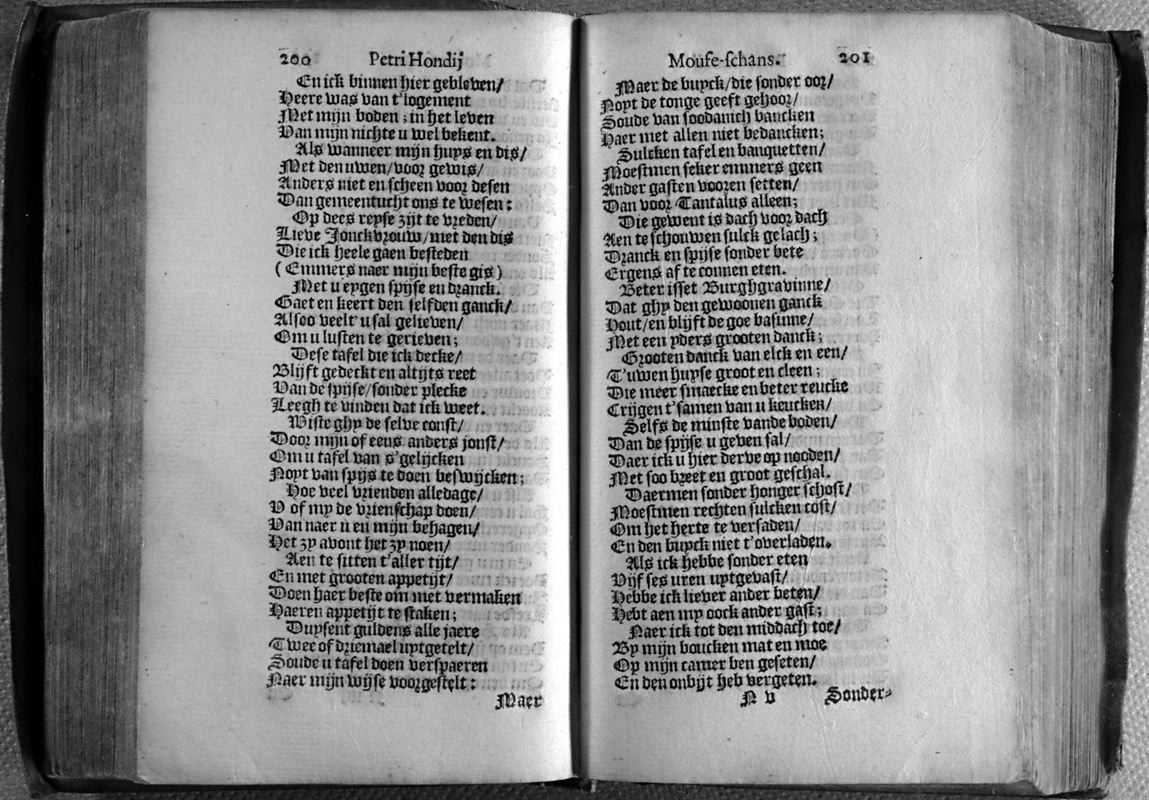 200 Petri Hondij
En ick binnen hier gebleven/
Heere was van t'logement
Met mijn boden; in het leven
Van mijn nichte u wel bekent.
Als wanneer mijn huys en dis/
Met den uwen/voor gewis/
Anders niet en scheen voor desen
Dan gemeentucht ons te wesen:
Op dees reyse zijt te vreden/
Lieve Jonckvrouw/met den dis
Die ick heele gaen besteden
(Emmers naer mijn beste gis)
Met u eygen spijse en dranck.
Gaet en keert den selfden ganck/
Alsoo veelt' u sal gelieven/
Om u lusten te gerieven;
Dese tafel die ick decke/
Blijft gedeckt en altijts reet
Van de spijse/sonder plecke
Leegh te vinden dat ick weet.
Wiste ghy de selve const/
Door mijn of eens anders jonst/
Om u tafel van s'gelijcken
Noyt van spijs te doen beswijcken;
Hoe veel vrienden alledage/
V of my de vrienschap doen/
Van naer u en mijn behagen/
Het zy avont het zy noen/
Aen te sitten t'aller tijt/
En met grooten appetijt/
Doen haer beste om met vermaken
Haeren appetijt te staken;
Duysent guldens alle jaere
Twee of driemael uytgetelt/
Soude u tafel doen verspaeren
Naer mijn wijse voorgestelt:
Maer
Mouse-schans. 201
Maer de buyck/die sonder oor/
Noyt de tonge geeft gehoor/
Soude van soodanich bancken
Haer met allen niet bedancken;
Sulcken tafel en banquetten/
Moestmen seker emmers geen
Ander gasten vooren setten/
Dan voor Tantalus alleen;
Die gewent is dach voor dach
Aen te schouwen sulck gelach;
Dranck en spijse sonder bete
Ergens af te connen eten.
Beter isset Burghgravinne/
Dat ghy den gewoonen ganck
Hout/en blijft de goe basinne/
Met een yders grooten danck;
Grooten danck van elck en een/
T'uwen huyse groot en cleen;
Die meer smaecke en beter reucke
Crijgen t'samen van u keucken/
Selfs de minste vande boden/
Dan de spijse u geven sal/
Daer ick u hier derve op nooden/
Met soo breet en groot geschal.
Daermen sonder honger schost/
Moestmen rechten sulcken cost/
Om het herte te versaden/
En den buyck niet t'overladen.
Als ick hebbe sonder eten
Vijf ses uren uytgevast/
Hebbe ick liever ander beten/
Hebt aen my oock ander gast;
Naer ick tot den middach toe/
By mijn boucken mat en moe
Op mijn camer ben geseten/
En den onbijt heb vergeten.
N v Sonder-